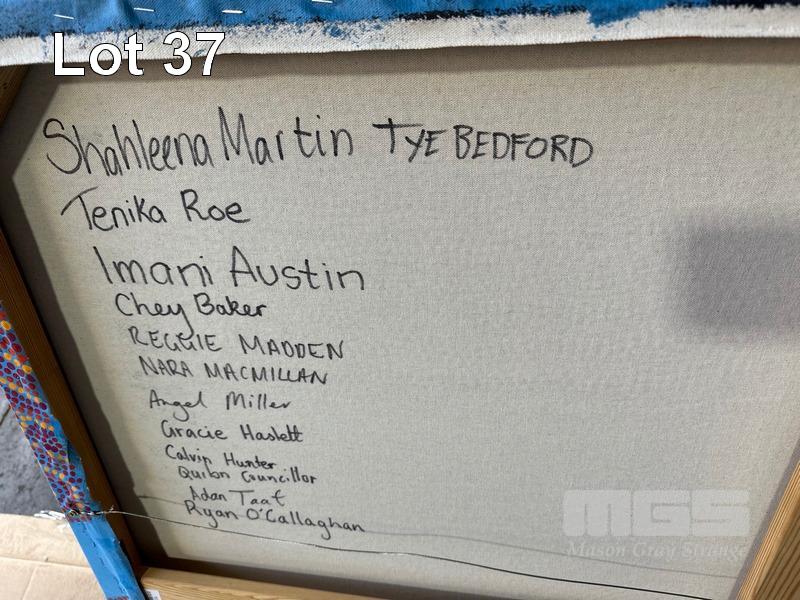 Lot 37
Shahleena Martin TYE BEDFORD
Tenika Roe
Imani Austin
Chey Baker
REGGIE MADDEN
NARA MACMILLAN
Angel Miller
Gracie Haslett
Calvin Hunter
Quilon Councillor
Adan Taat
Ryan O'Callaghan
MGS
Mason Gray Strange